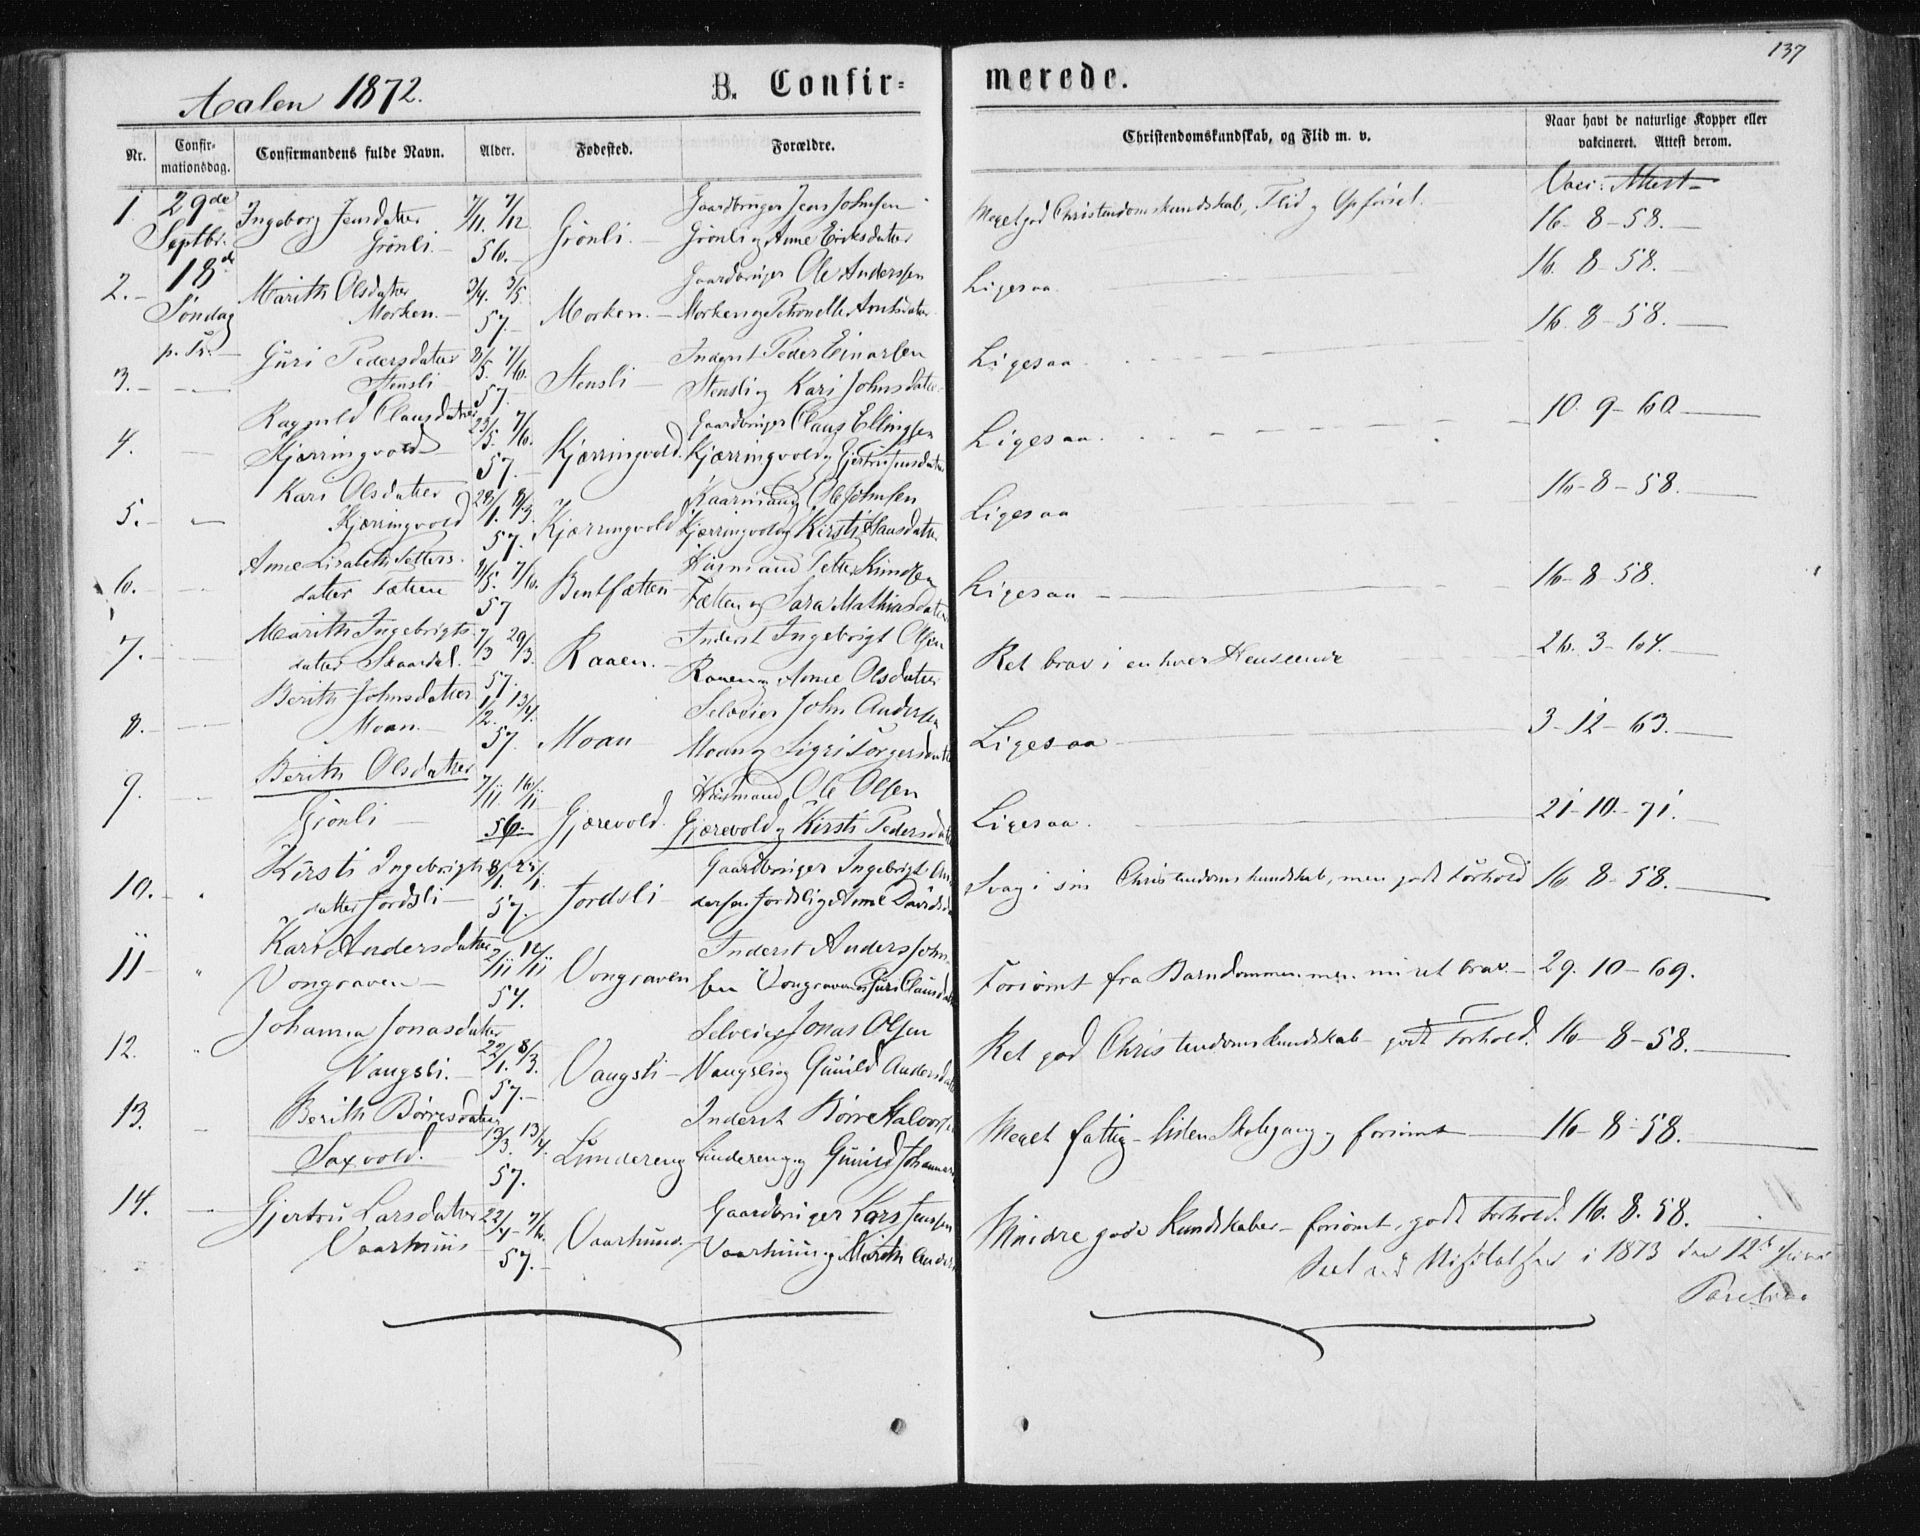 137
Aalen 1872.
B. Confir=
merede.
Nr.
Confir-
mationsdag.
Confirmandens fulde Navn.
Alder.
Fødested.
Forældre.
Christendomskundskab, og Flid m. v.
Naar havt de naturlige Kopper eller
vakcineret. Attest derom.
Vacc: Attest
1. 29de Ingeborg Jensdatter 7/11. 7/12 Gaardbruger Jens Johnsen Meget god Christendomskundskab, Flid og Opførsel. 16-8-58.
Septbr. Grønli. 56. Grønli. Grønli og Anne Ericksdatter
2. 18de Marith Olsdatter 3/4. 3/5. Gaardbruger Ole Anderssen Ligesaa 16. 8-58.
Søndag Morken. 57. Morken. Morken og
p. Tr.
3. Guri Pedersdatter 8/5. 7/6. Inderst Peder Einarsen Ligesaa 16. 8-58.
Stensli 57. Stensli Stensli og Kari Johnsdatter
4. Ragnild Clausdatter 23/5. 7/6. Gaardbruger Claus Ellingsen Ligesaa. 10. 9-60
Kjærringvold 57. Kjærringvold. Kjærringvold og Gjertru Jensdatter
5. Kari Olsdatter 28/1. 8/3. Kaarmand Ole Johnsen Ligesaa 16-8-58.
Kjærringvold 57. Kjærringvold Kjærringvold og Kirsti Hansdatter
6. Anne Lisabeth Petters- 11/5. 7/6. Huusmand Petter Knudsen Ligesaa 16-8-58.
datter Fætten 57 Bentfætten Fætten og Sara Mathiasdatter
7. Marith Ingebrigts- 7/3 29/3. Inderst Ingebrigt Olsen Ret brav i enhver Henseende 26. 3-64.
datter Skaardal. 57. Raaen. Raaen og Anne Olsdatter
8. Berith Johnsdatter 1/2. 13/4. Selveier John Andersen Ligesaa 3-12-63.
Moan. 57. Moan Moan og Sigri Torgersdatter
9. Berith Olsdatter 7/11. 16/11 Huusmand Ole Olsen Ligesaa. 21-10-71.
Grønli 56. Gjærevold. Gjærevold og Kirsti Pedersdatter
10. Kirsti Ingebrigts 8/1. 25/1. Gaardbruger Ingebrigt An Svag i sin Christendomskundskab, men godt Forhold 16-8-58.
datter Jordsli 57. Jordsli dersen Jordsli og Anne Davids
11 Kari Andersdatter 2/11 14/11 Inderst Anders John- Forsømt fra Barndommen men nu ret brav. 29. 10-69.
Vongraven 57. Vongraven sen Vongraven og Guri Clausdatter
12. Johanna Jonasdatter 22/1. 8/3. Selveier Jonas Olsen Ret god Christendomskundskab godt Forhold. 16-8-58.
Vangsli. 57. Vangsli Vangsli og Gunild Andersdatter
13. Berith Børresdatter 13/3. 13/4. Inderst Børre Halvorsen Meget fattig-liden Skolegang og forsømt 16-8-58.
Saxvold. 57. Lundereng Lundereng og Gunild Johannes
14. Gjertru Larsdatter 22/4 7/6. Gaardbruger Lars Jensen Mindre gode Kundskaber-forsømt, godt Forhold. 16. 8. 58.
Vaarhuus 57. Vaarhuus. Vaarhuus og Marith Anders
Seet ved Visitatsen i 1873 den 12te Juni